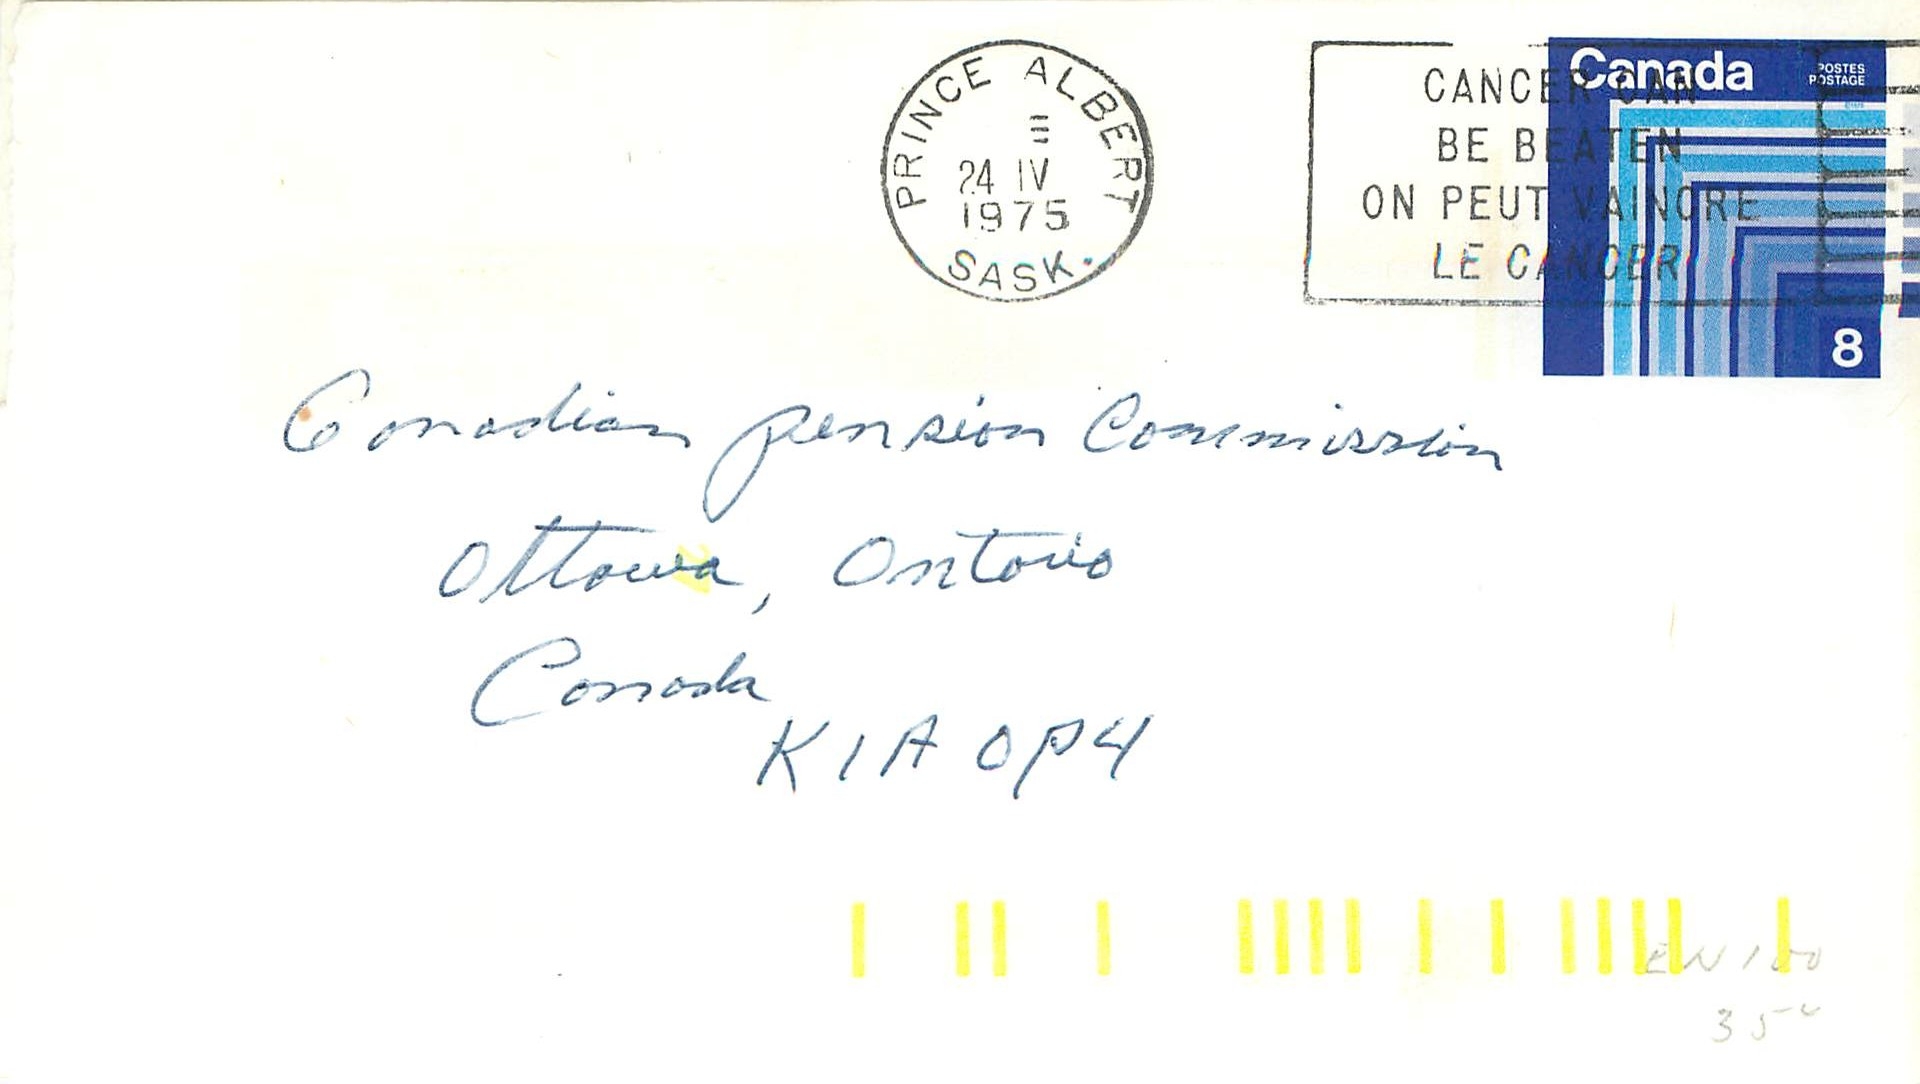 PRINCE ALBERT
24 IV
1975
SASK.
CANCER CAN
BE BEATEN
ON PEUT VAINCRE
LE CANCER
Canada
POSTES
POSTAGE
8
Canadian pension Commission
Ottawa, Ontario
Canada
K1A 0P4
EN 100
35¢